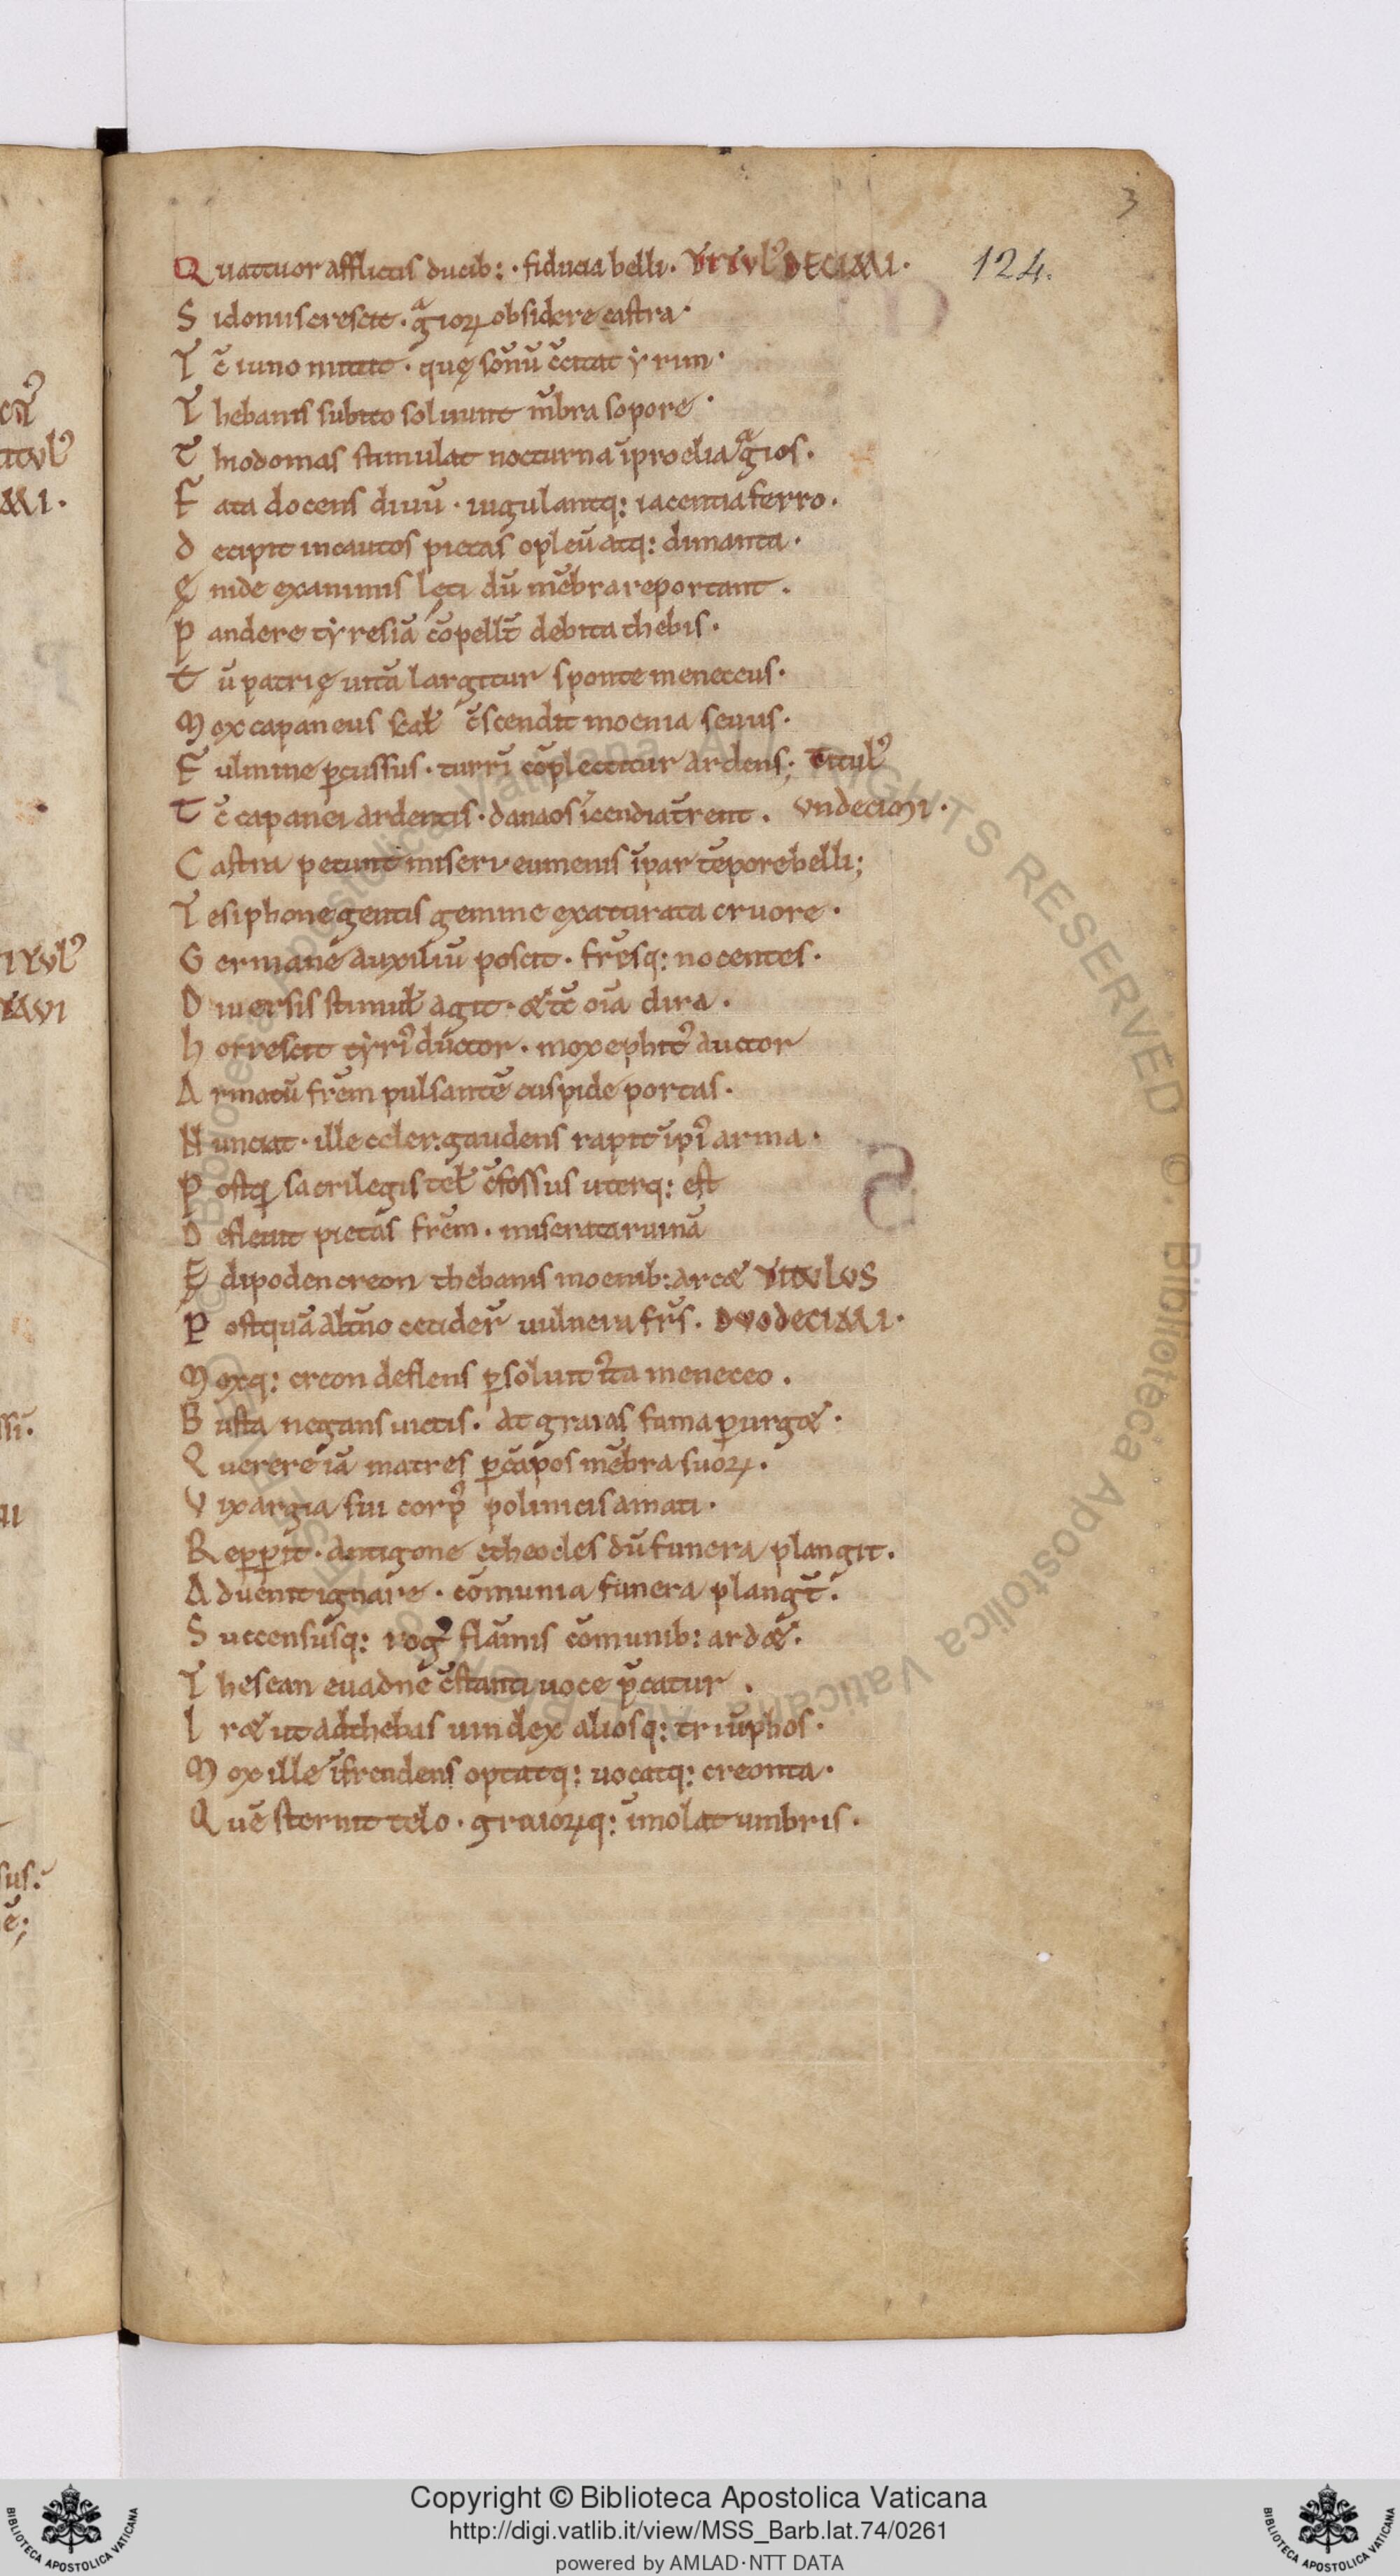 3
Quattuor afflictis ducib: · fiducia belli · TITULꝰ DECIMI · 124.
Sidonius crescit · gͣioꝝ obsidere castra ·
Tc̄ iuno mittit · quę sonū ēcitat yrim ·
Thebanis subito soluunt mb̄ra sopore ·
Thiodomas stimulat nocturna īproelia gͣios ·
Fata docens diuū · iugulantq: iacentia ferro ·
Decipit incautos pietas opleū atq: dimanta ·
Ęnide exanimis lęti dū mēbra reportant ·
Pandere tyresiā cōpellt̄ debita thebis ·
Tū patrię uitā largitur sponte meneceus ·
Mox capaneus scał c̄scendit moenia seuus ·
Fulmine ꝑcussus · turrī cōplectitur ardens; Titulꝰ
Tc̄ capanei ardentis · danaos īcendia t̄rent · undecimi ·
Castra petunt miseri eumenis īpar tēpore belli;
Tesiphone gentis gemine exaturata cruore ·
Germane auxiliū poscit · fr̄esq: nocentes ·
Diuersis stimuł agit · &tc̄ oīa dira ·
horrescit tyriꝰ ductor · mox ephitꝰ auctor
Armatū fr̄em pulsantē cuspide portas ·
Nunciat · ille celer gaudens rapit īpiꝰ arma ·
Postꝙ sacrilegis teł c̄fossus uterq: est
Defleuit pietas fr̄em · miserata ruinā
Ędipoden creon thebanis moenib: arc& TITULUS
Postquā altn̄o cecider̄ uulnera fr̄s · DUODECIMI ·
Moxq: creon deflens ꝑsoluit iꝰta meneceo ·
Busta negans uictis · at graias fama ꝑurg& ·
Querere iā matres ꝑcāpos mēbra suoꝝ ·
Vix argia sui corpꝰ polinicis amati ·
Repꝑit · antigone etheocles dū funera plangit ·
Aduenit ignare · cōmunia funera plangt̄ ·
Succensusq: rogꝰ flāmis cōmunib: ard& ·
Thesean euadne c̄stanti uoce p̄catur ·
Ir& ut ad thebas uindex aliosq: triūphos ·
Mox ille īfrendens optatq: uocatq: creonta ·
Quē sternit telo · graioꝝq: īmolat umbris ·
Copyright © Biblioteca Apostolica Vaticana
http://digi.vatlib.it/view/MSS_Barb.lat.74/0261
powered by AMLAD·NTT DATA